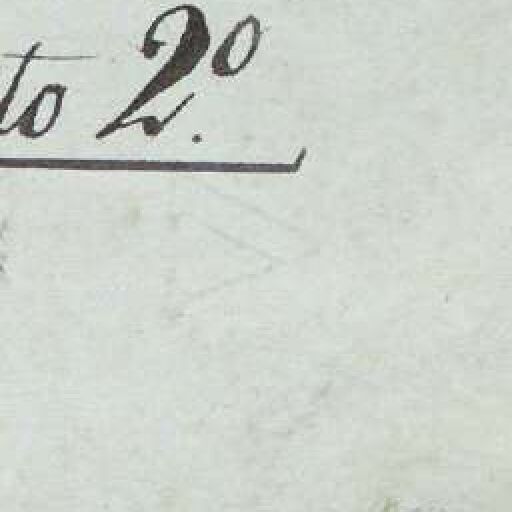 to 2.º